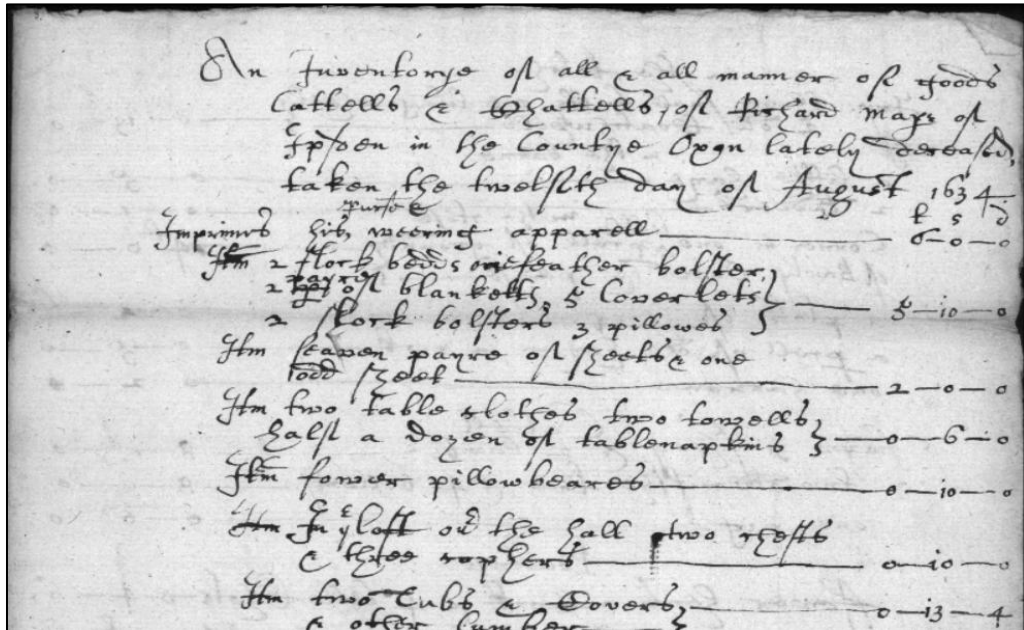 An Inventorye of all & all manner of goods
Cattells & Chattells, of Richard Mays of
Ipsden in the Countye Oxon lately deceased,
taken the twelfth day of August 1634
li s d
purse &
Imprimis his weering apparell 6—0—0
Itm 2 flock bedds one feather bolster
2 payre of blanketts, 5 Coverlets 5—10—0
2 flock bolsters 3 pillowes
Itm seaven payre of sheets & one
odd sheet 2—0—0
Itm two table clothes two towells
halfe a dozen of tablenapkins 0—6—0
Itm fower pillowbeares 0—10—0
Itm In ye loft over the hall two chests
& three cophers 0—10—0
Itm two Tubs & Covers 0—13—4
& other lumber